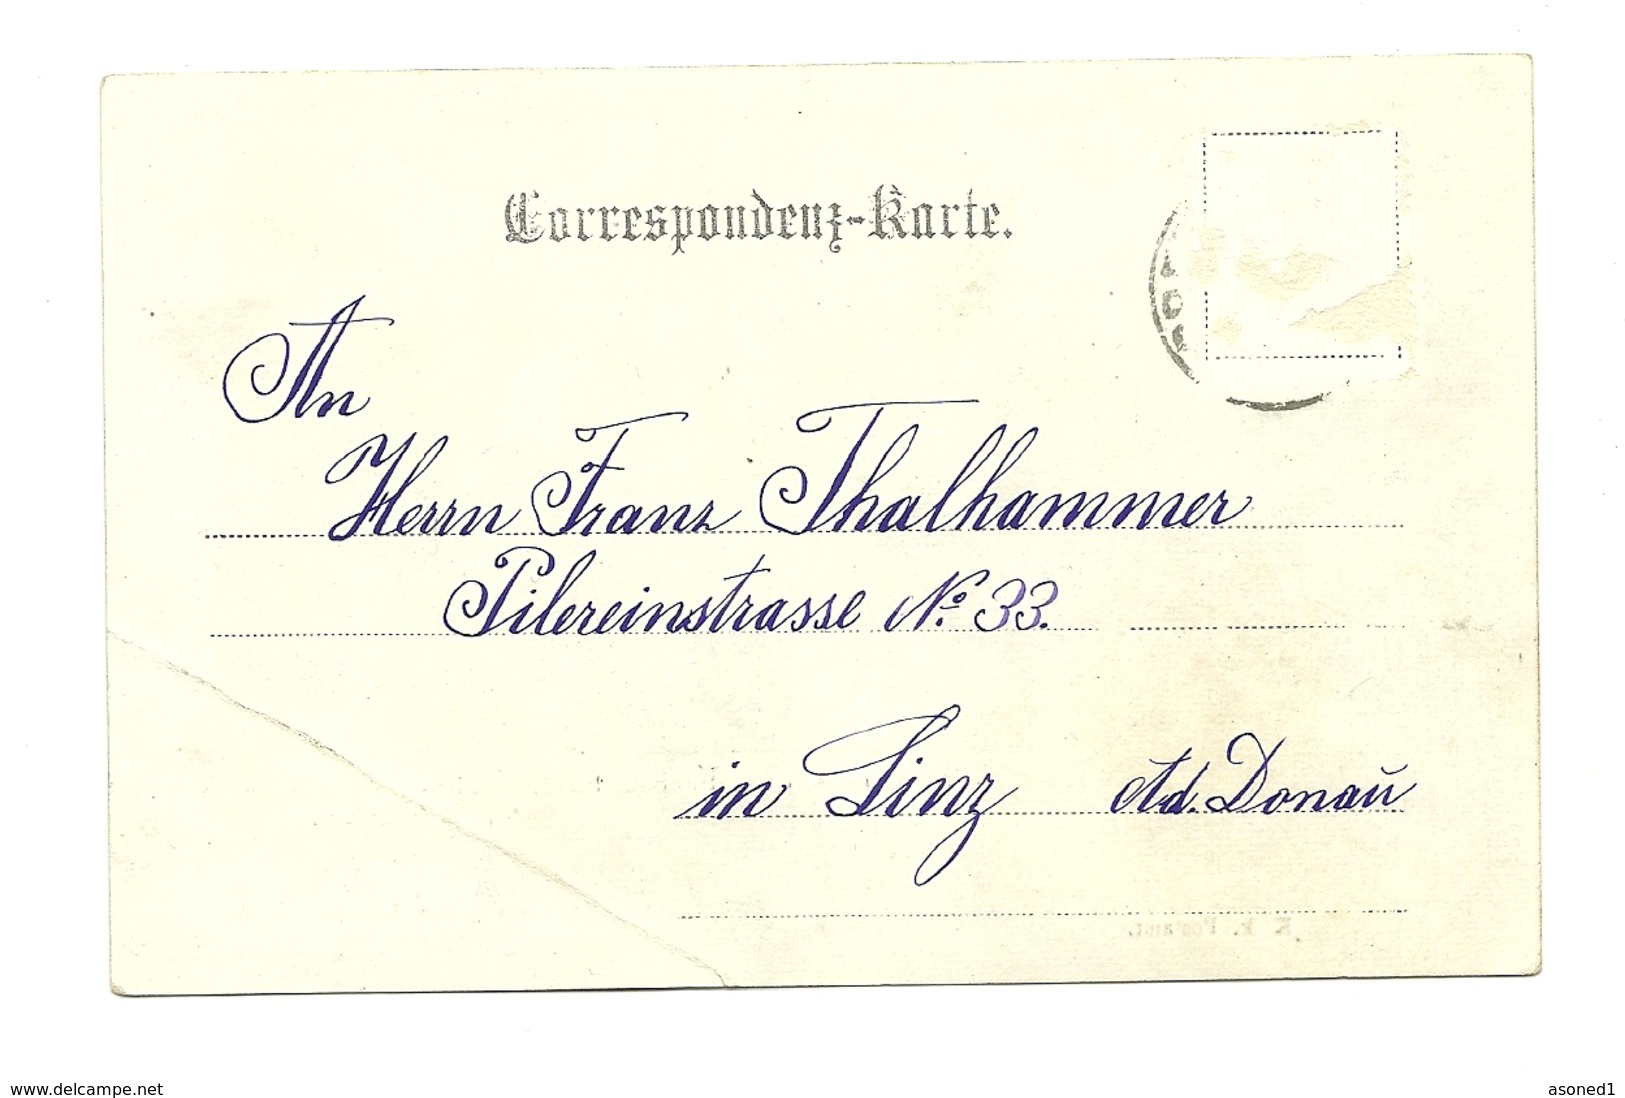 Correspondenz-Karte.
An
Herrn Franz Thalhammer
Pilereinstrasse No. 33.
in Linz Ad. Donau
K. k. Postamt.
www.delcampe.net
asoned1